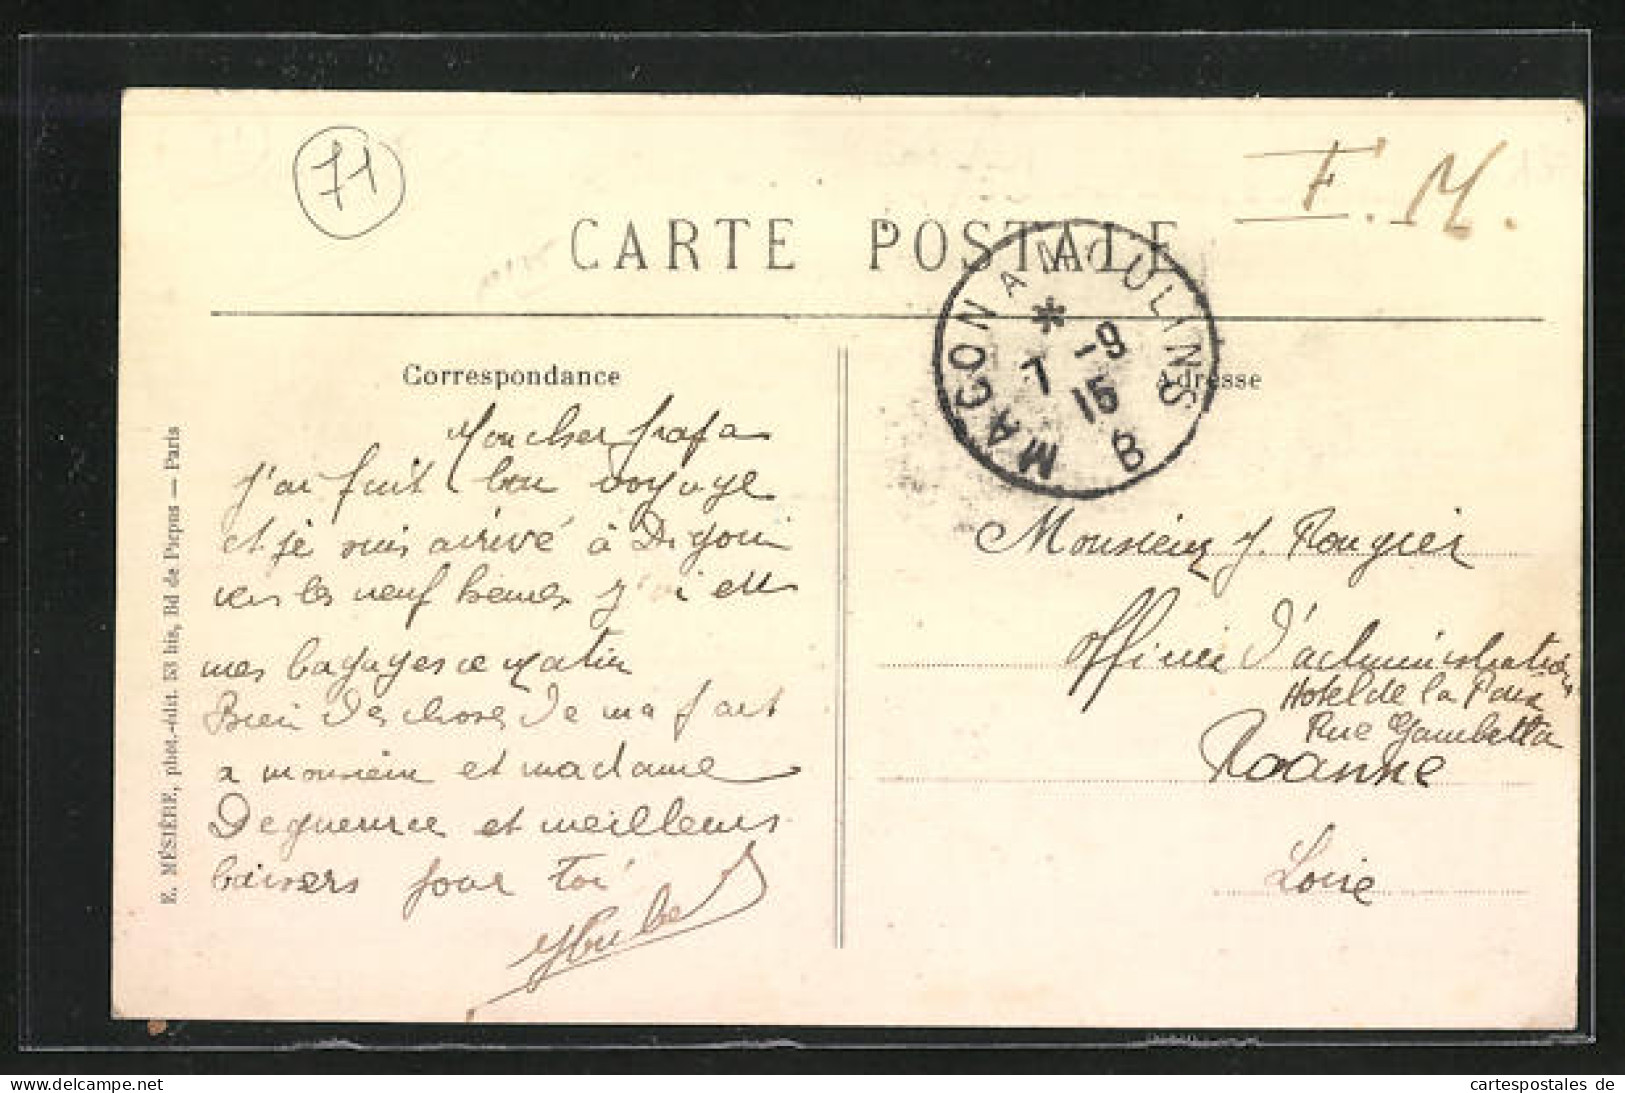 71
F. M.
CARTE POSTALE
MACON A MOULINS
7 -8
15
B
Correspondance
Adresse
Mon cher papa
J'ai fait bon voyage
et je suis arrivé à Digoin
vers les neuf heures j'ai eu
mes bagages ce matin
Bien des choses de ma part
a monsieur et madame
et meilleurs
baisers pour toi
Monsieur J. Rougier
Officier d'administration
Hotel de la Paix
Rue Gambetta
Roanne
Loire
E. MÉSIÈRE, phot.-édit. 53 bis, Bd de Picpus — Paris
delcampe.net
cartespostales de